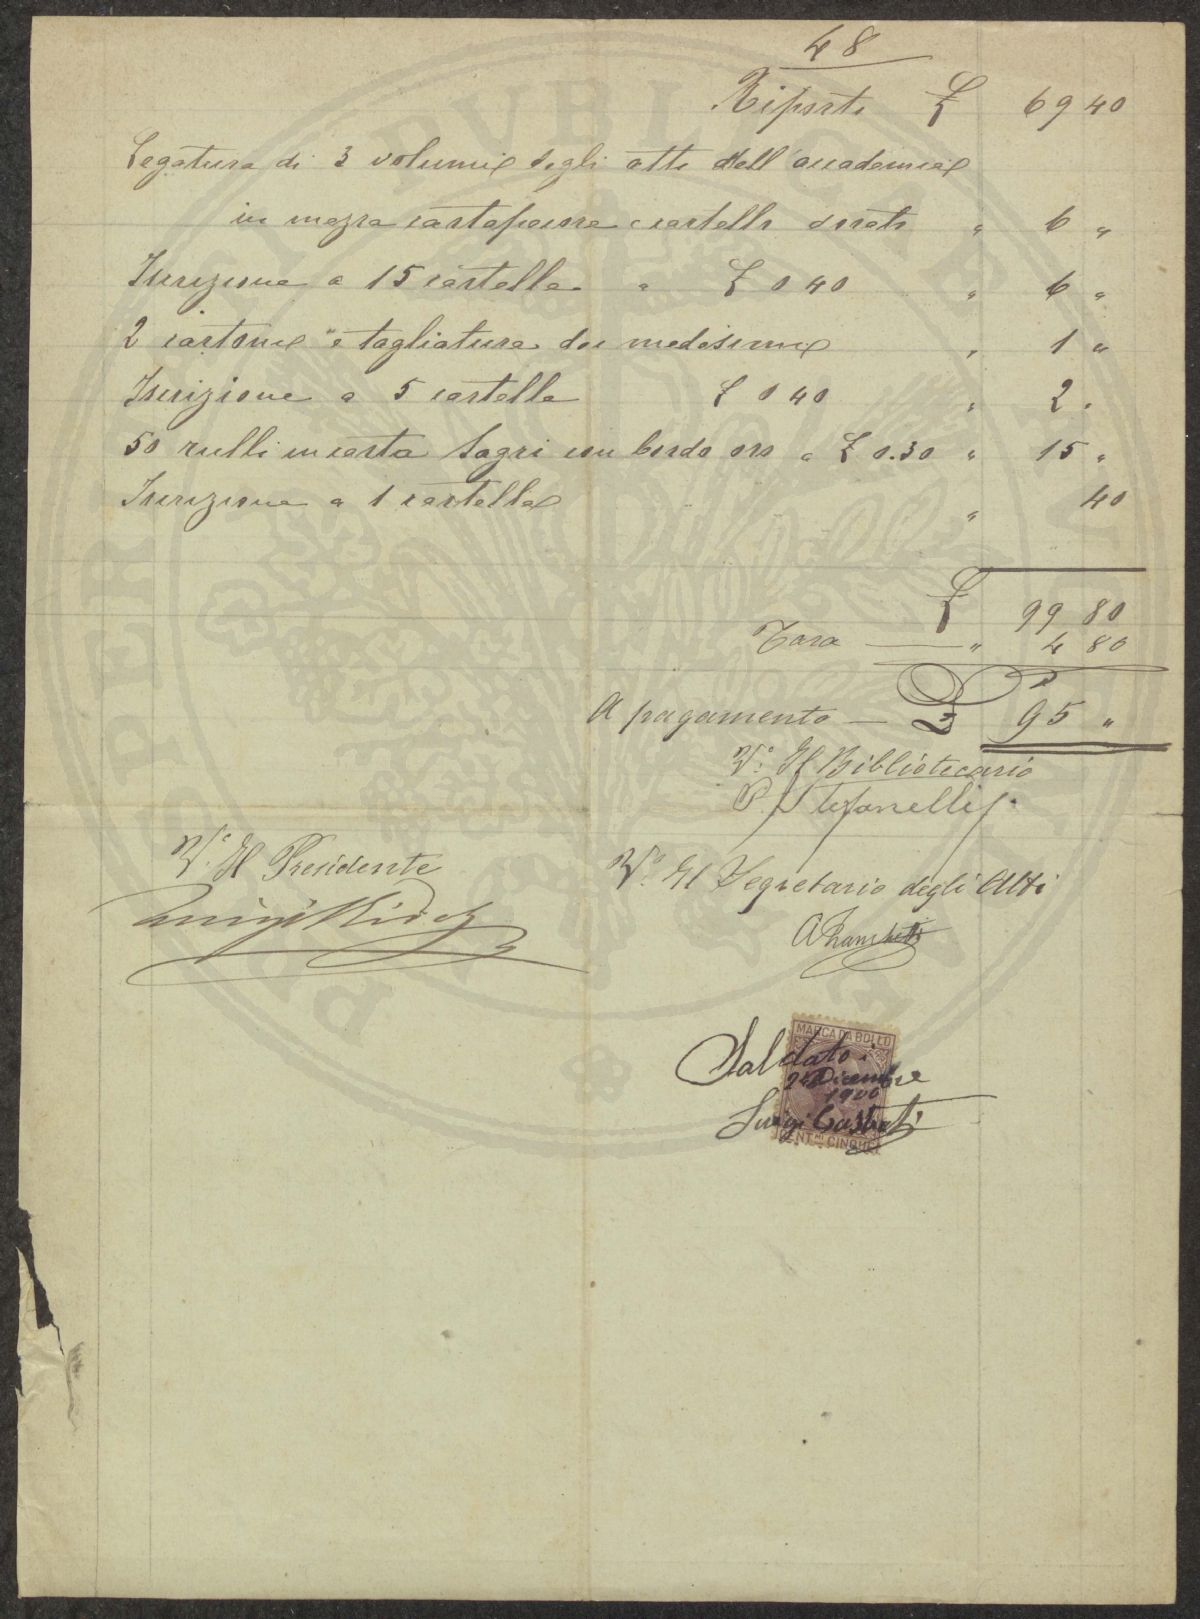 48
Riporto £ 69 40
Legatura di 3 volumi degli atti dell'accademia
in mezza cartapecora e cartelli dorati " 6 "
Iscrizione a 15 cartelle a £ 0 40 " 6 "
2 cartoni e tagliatura dei medesimi " 1 "
Iscrizione a 5 cartelle £ 0 40 " 2 "
50 rulli in carta Sagri con bordo oro a £ 0.30 " 15 "
Iscrizione a 1 cartella " 40
£ 99 80
Tara — " 4 80
A pagamento — £ 95 "
Vº. Il Bibliotecario
P. Stefanelli
Vº. Il Presidente
Luigi Ridolfi
Vº. Il Segretario degli Atti
MARCA DA BOLLO
Saldato i
24 Dicembre
1900
Luigi
CENT.MI CINQUE